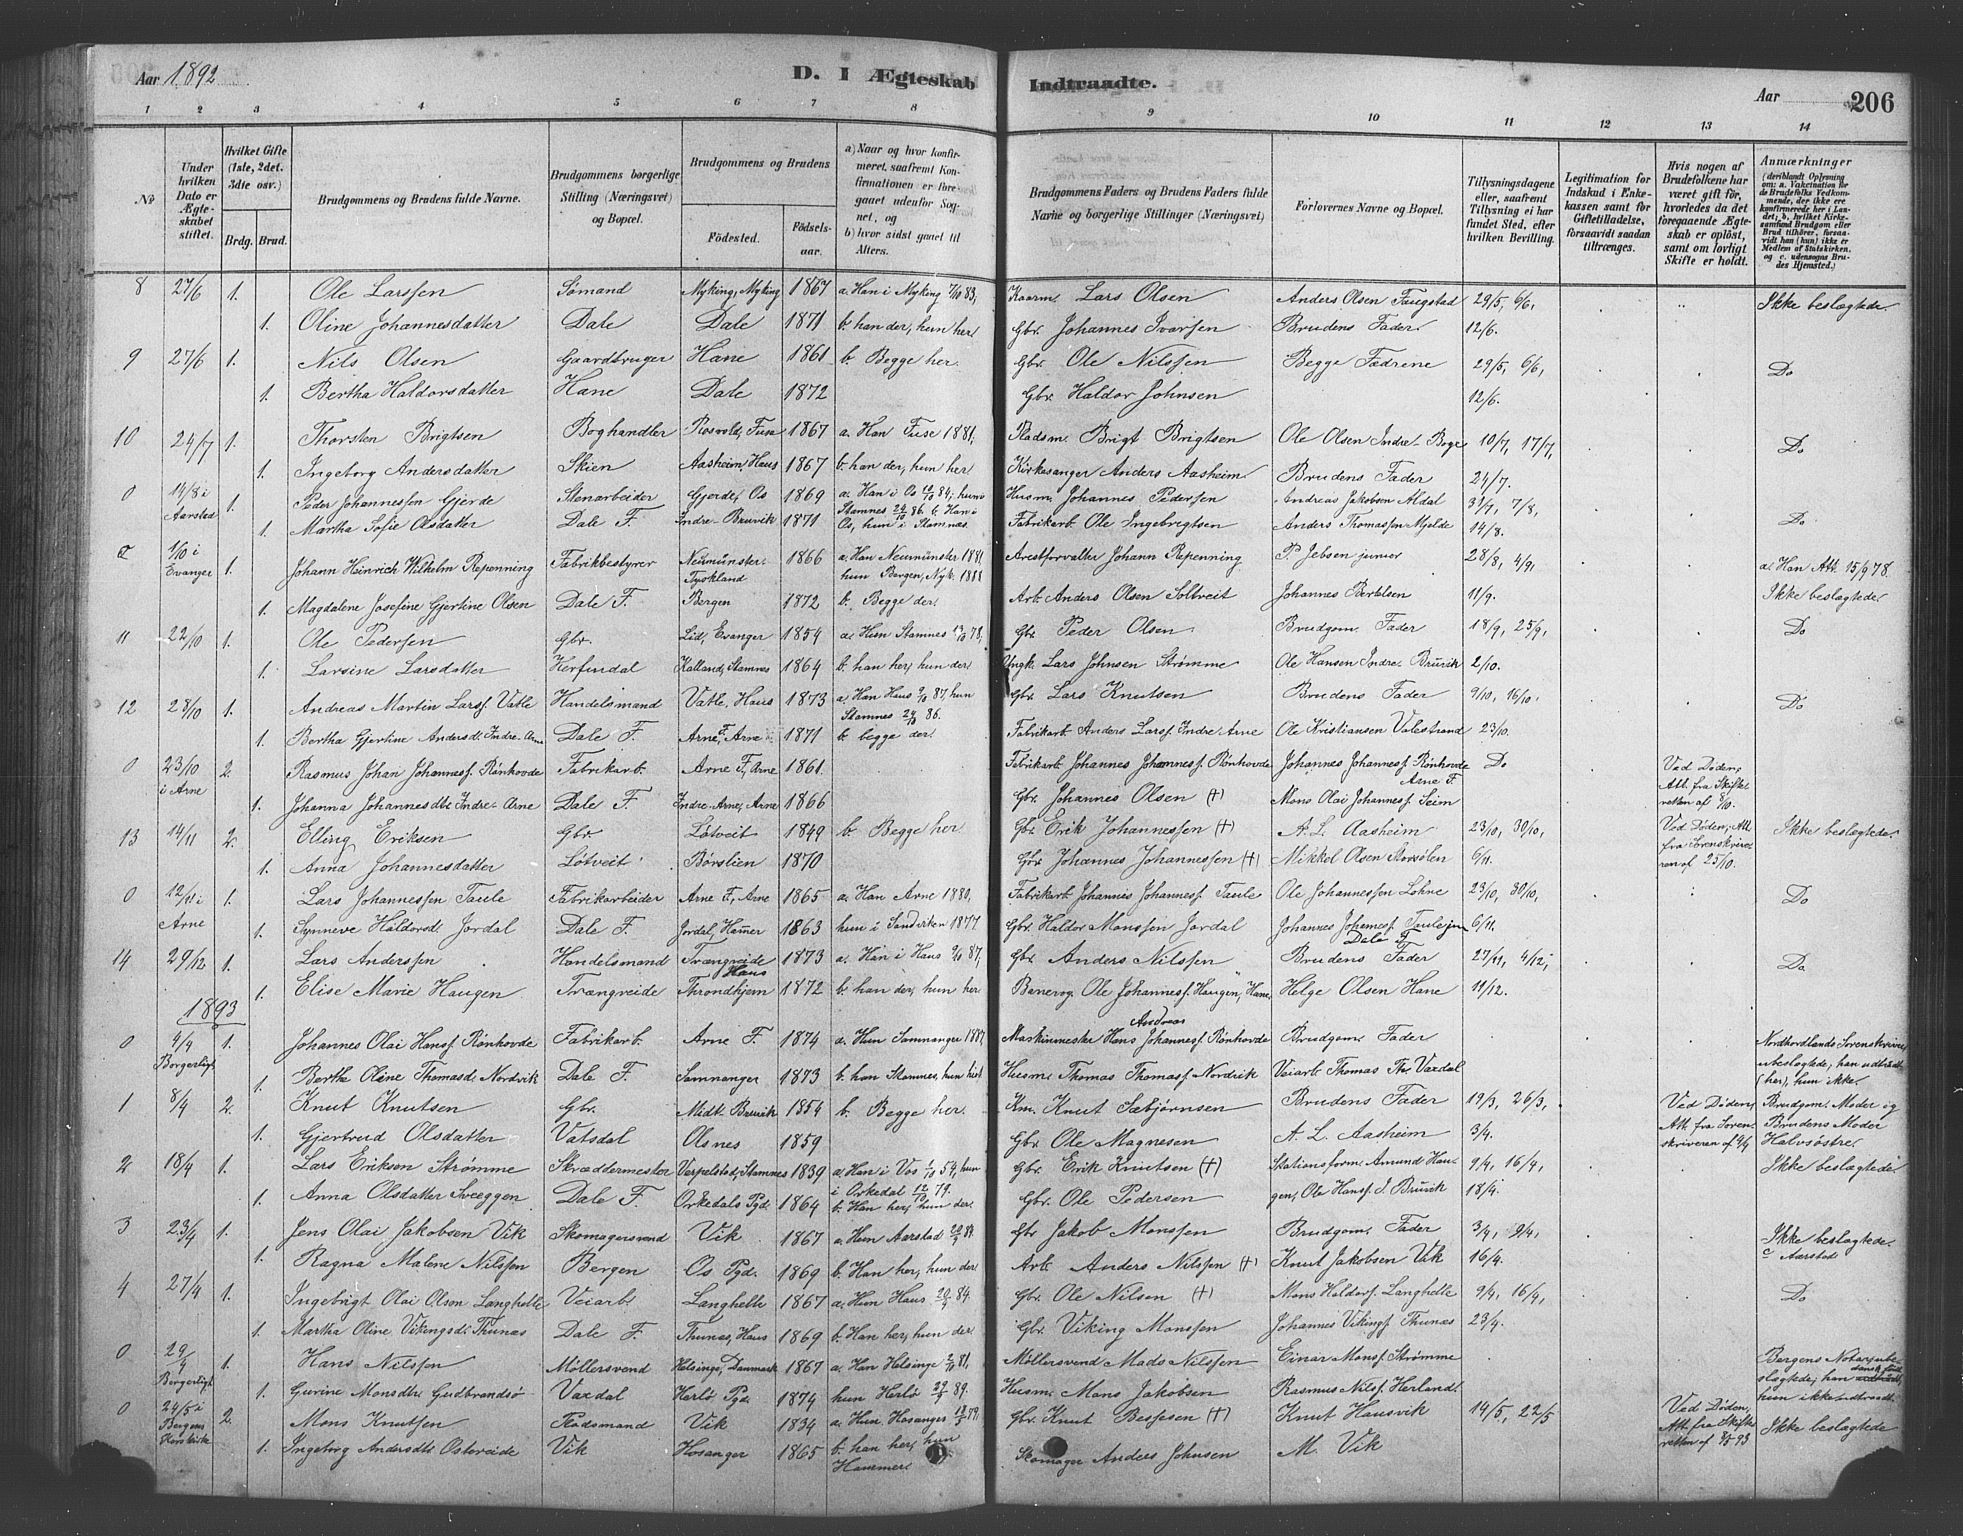 Aar 1892
D. I Ægteskab Indtraadte.
Aar
206
1 2 3 4 5 6 7 8 9 10 11 12 13 14
No
Under hvilken Dato er Ægteskabet stiftet.
Hvilket Gifte (1ste, 2det, 3die osv.)
Brdg. Brud.
Brudgommens og Brudens fulde Navne.
Brudgommens borgerlige Stilling (Næringsvei) og Bopæl.
Brudgommens og Brudens
Födested. Födselsaar.
a) Naar og hvor konfirmeret, saafremt Konfirmationen er foregaaet udenfor Sognet, og
b) hvor sidst gaaet til Alters.
Brudgommens Faders og Brudens Faders fulde Navne og borgerlige Stillinger (Næringsvei)
Forlovernes Navne og Bopæl.
Tillysningsdagene eller, saafremt Tillysning ei har fundet Sted, efter hvilken Bevilling.
Legitimation for Indskud i Enkekassen samt for Giftetilladelse, forsaavidt saadan tiltrænges.
Hvis nogen af Brudefolkene har været gift för, hvorledes da det foregaaende Ægteskab er oplöst, samt om lovligt Skifte er holdt.
Anmærkninger (deriblandt Oplysning om: a. Vakcination for de Brudefolks Vedkommende, der ikke ere konfirmerede her i Landet; b. hvilket Kirkesamfund Brudgom eller Brud tilhörer, forsaavidt han (hun) ikke er Medlem af Statskirken. og c. udensogns Brudes Hjemsted.)
8 27/6 1. Ole Larssen Sømand Myking, Myking 1867 a. Han i Myking 7/10 83, Lars Olsen Anders Olsen Faugstad 29/5, 6/6, Ikke beslægtede
1. Oline Johannesdatter Dale Dale 1871 b. han der, hun her Gbr. Johannes Ivarsen Brudens Fader 12/6.
9 27/6 1. Nils Olsen Gaardbruger Hane 1861 b. Begge her. Gbr. Ole Nilssen Begge Fædrene 29/5, 6/6, Do
1. Bertha Haldorsdatter Hane Dale 1872 Gbr. Haldor Johnsen 12/6.
10 24/7 1. Thorsten Brigtsen Boghandler Rosvold, Fuse 1867 a. Han Fuse 1881, Pladsm. Brigt Brigtsen Ole Olsen Indre-Boge 10/7, 17/7, Do
1. Ingeborg Andersdatter Skien Aasheim, Haus 1867 b. han der, hun her Kirkesanger Anders Aasheim Brudens Fader 24/7.
0 14/8 i Aarstad 1. Peder Johannessen Gjerde Stenarbeider Gjerde, Os 1869 a. Han i Os 12/10 84, hun i Husm. Johannes Pedersen Andreas Jakobsen Aldal 31/7, 7/8, Do
1. Martha Sofie Olsdatter Dale F. Indre-Bruvik 1871 Stamnes 24/10 86 b. Han i Os, hun i Stamnæs. Fabrikarb. Ole Ingebrigtsen Anders Thomassen Mjelde 14/8.
1/10 i Evanger 1. Johann Heinrich Wilhelm Repenning Fabrikbestyrer Neumünster Tyskland 1866 a. Han Neumünster 1881 hun Bergen, Nyk. 1888 Arestforvalter Johann Repenning P. Jebsen junior 28/8, 4/9, a. Han Att. 15/9 78.
1. Magdalene Josefine Gjertine Olsen Dale F. Bergen 1872 b. Begge der Arb. Anders Olsen Soltveit Johannes Bertelsen 11/9. Ikke beslægtede.
11 22/10 1. Ole Pedersen Gbr. Lid, Evanger 1854 a. Hun Stamnes 13/10 78, Gbr. Peder Olsen Brudgom. Fader 18/9, 25/9, Do
1. Larsine Larsdatter Herfindal Kalland, Stamnes 1864 b. han her, hun der Ungk. Lars Johnsen Strømme Ole Hansen Indre Bruvik 2/10.
12 28/10 1. Andreas Martin Larss. Vatle Handelsmand Vatle, Haus 1873 a. Han Haus 9/10 87, hun Stamnes 24/10 86. Gbr. Lars Knutsen Brudens Fader 9/10, 16/10, Do
1. Bertha Gjertine Andersdt. Indre-Arne Dale F. Arne F., Arne 1871 b. begge der Fabrikarb. Anders Larss. Indre-Arne Ole Kristiansen Valestrand 23/10.
0 23/10 i Arne 2. Rasmus Johan Johanness. Rönhovde Fabrikarb. Arne F., Arne 1861. Fabrikarb. Johannes Johanness. Rönhovde Johannes Johanness. Rönhovde Arne F. Do Ved Döden, Att. fra Skifteretten af 8/10.
1. Johanna Johannesdtr. Indre-Arne Dale F. Indre-Arne, Arne 1866 Gbr. Johannes Olsen (+) Mons Olai Johanness. Seim
13 14/11 2. Elling Eriksen Gbr. Løtveit 1849 b. Begge her Gbr. Erik Johannessen (+) A. L. Aasheim 23/10, 30/10, Ved Döden, Att. fra Sorenskriveren af 25/10. Ikke beslægtede.
1. Anna Johannesdatter Løtveit Börslien 1870 Gbr. Johannes Johannessen (+) Mikkel Olsen Storsölen 6/11.
0 12/11 i Arne 1. Lars Johannessen Taule Fabrikarbeider Arne F., Arne 1865 a. Han Arne 1880, Fabrikarb. Johannes Johannesf. Taule Ole Johannessen Lohne 23/10, 30/10, Do
1. Synneve Haldorsdt. Jordal Dale F. Jordal, Hamer 1863 hun i Sandviken 1877 Gbr. Haldor Monssen Jordal Johannes Johannesf. Taule jun Dale F. 6/11.
14 29/12 1. Lars Anderssen Handelsmand Trængreide Haus 1873 a. Han i Haus 9/10 87, Gbr. Anders Nilssen Brudens Fader 27/11, 4/12, Do
1. Elise Marie Haugen Trængreide Throndhjem 1872 b. han der, hun her Banevog. Ole Johannesf. Haugen, Hane Helge Olsen Hane 11/12.
1893
0 4/4 Borgerligt 1. Johannes Olai Hansf. Rönhovde Fabrikarb. Arne F. 1874 a. Hun Samnanger 1887, Maskinmester Hans Andreas Johannesf. Rönhovde Brudgom. Fader Nordhordlands Sorenskriveri, ubeslægtede, han udtraadt (her), hun ikke.
1. Berthe Oline Thomasdt. Nordvik Dale F. Samnanger 1873 b. han Stamnes, hun hist Husm. Thomas Thomasf. Nordvik Veiarb. Thomas Th. Vaxdal
1 8/4 2. Knut Knutsen Gbr. Midt. Bruvik 1854 b. Begge her. Knut Sæbjörnsen Brudens Fader 19/3, 26/3, Ved Döden, Att. fra Sorenskriveren af 4/4 Brudgom. Moder og Brudens Moder Halvsöstre.
1. Gjertrud Olsdatter Vatsdal Olsnes 1859 Gbr. Ole Magnesen A. L. Aasheim 3/4.
2 18/4 1. Lars Eriksen Strømme Skrædermester Verpelstad, Stamnes 1839 a. Han i Vos 1/10 54, hun i Orkedal 12/10 79. Gbr. Erik Knutsen (+) Stationsform. Amund Hau- 9/4, 16/4, Ikke beslægtede
1. Anna Olsdatter Svæggen Dale F. Orkedals Pgd. 1864 b. Han her, hun der Gbr. Ole Pedersen gen, Ole Hansf. I. Bruvik 18/4.
3 23/4 1. Jens Olai Jakobsen Vik Skomagersvend Vik 1867 a. Hun Aarstad 20/4 84. Gbr Jakob Monssen Brudgom. Fader 3/4, 9/4, Ikke beslægtede.
1. Ragna Malene Nilssen Bergen Os Pgd. 1869 b. Han her, hun der Arb. Anders Nilssen (+) Knut Jakobsen Vik 16/4. c Aarstad
4 27/4 1. Ingebrigt Olai Olsen Langhelle Veiarb. Langhelle 1867 a. Hun Haus 20/4 84. Gbr. Ole Nilsen (+) Mons Haldorf. Langhelle 9/4, 16/4, Do
1. Martha Oline Vikingsdt. Thunæs Dale F. Thunæs, Haus 1869 b. Han her, hun der Gbr. Viking Monssen Johannes Vikingf. Thunæs 23/4.
0 29/4 Borgerligt 1. Hans Nilssen Möllersvend Helsinge, Danmark 1867 a. Han Helsinge 2/10 81, Möllersvend Mads Nilssen Einar Monsf. Strømme
1. Gurine Monsdtr. Gudbrandsö Vaxdal Herlö Pgd. 1874 hun Herlö 29/9 89. Husm. Mons Jakobsen Rasmus Nilsf. Herland Bergens Notarius, ubeslægtede, han dansk födt, hun ikke udtraadt.
0 24/5 i Bergens Korskirke 2. Mons Knutsen Pladsmand Vik 1834 a. Hun Hosanger Gbr. Knut Bessesen (+) Knut Hausvik 14/5, 22/5 Ved Döden, Att. fra Skifteretten af 8/5 93 Ikke beslægtede
1. Ingeborg Andersdtr Ostereide Vik Hosanger 1865 b. han her, hun Hammer. Skomager Anders Johnsen M. Vik